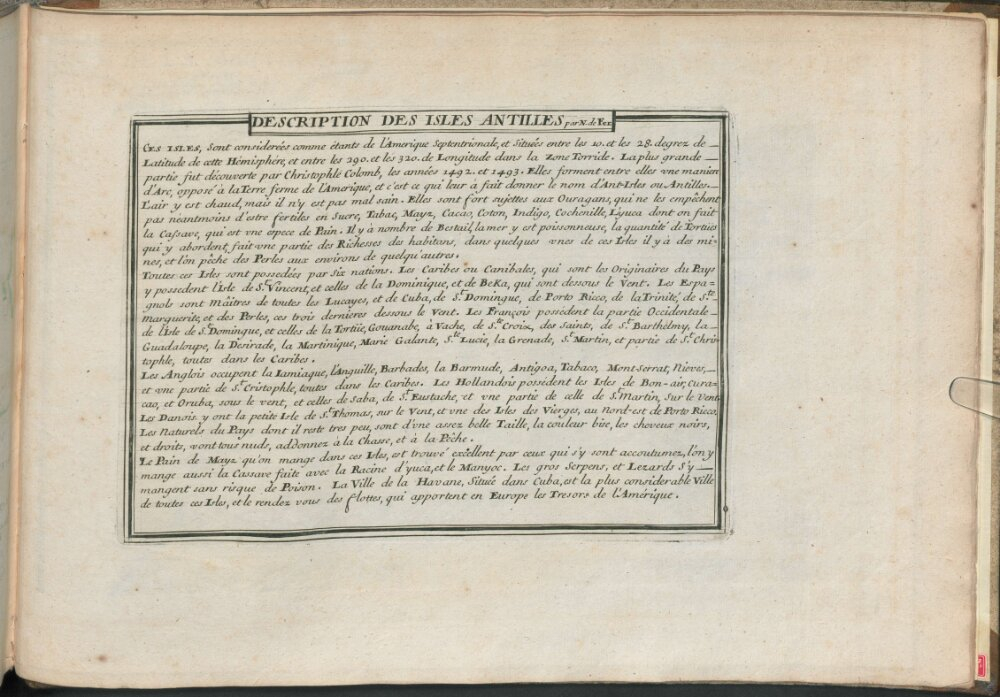 DESCRIPTION DES ISLES ANTILLES par N. de Fer
CES ISLES, Sont considerées comme étants de l'Amerique Septentrionale, et Situées entre les 10. et les 28. degrez de
Latitude de cette Hémisphére, et entre les 290. et les 320. de Longitude dans la Zone Torride. La plus grande
partie fut découverte par Christophle Colomb, les années 1492. et 1493. Elles forment entre elles vne maniere
d'Arc, opposé à la Terre ferme de l'Amerique, et c'est ce qui leur à fait donner le nom d'Ant-Isles ou Antilles.
L'air y est chaud, mais il n'y est pas mal sain. Elles sont fort sujettes aux Ouragans, qui ne les empêchent
pas néantmoins d'estre fertiles en Sucre, Tabac, Mayz, Cacao, Coton, Indigo, Cochenille, L'yuca dont on fait
la Cassave, qui est vne espece de Pain. Il y à nombre de Bestail, la mer y est poissonneuse, la quantité de Tortües
qui y abordent, fait vne partie des Richesses des habitans, dans quelques vnes de ces Isles il y à des mi-
nes, et l'on pêche des Perles aux environs de quelqu'autres.
Toutes ces Isles sont possedées par Six nations. Les Caribes ou Canibales, qui sont les Originaires du Pays
y possedent l'Isle de St. Vincent, et celles de la Dominique, et de BeKa, qui sont dessous le Vent. Les Espa-
gnols sont Maîtres de toutes les Lucayes, et de Cuba, de St. Domingue, de Porto Ricco, de la Trinité, de Ste.
Marguerite, et des Perles, ces trois dernieres dessous le Vent. Les François possédent la partie Occidentale
de l'Isle de St. Domingue, et celles de la Tortüe, Gouanabe, à Vache, de Ste. Croix, des Saints, de St. Barthélmy, la
Guadaloupe, la Desirade, la Martinique, Marie Galante, Ste. Lucie, la Grenade, St. Martin, et partie de St. Chris-
tophle, toutes dans les Caribes.
Les Anglois occupent la Iamiaque, l'Anguille, Barbades, la Barmude, Antigoa, Tabaco, Mont-Serrat, Niéves,
et vne partie de St. Cristophle, toutes dans les Caribes. Les Hollandois possedent les Isles de Bon-air, Cura-
cao, et Oruba, sous le vent, et celles de Saba, de St. Eustache, et vne partie de celle de St. Martin, Sur le Vent.
Les Danois y ont la petite Isle de St. Thomas, sur le Vent, et vne des Isles des Vierges, au Nord-est de Porto Ricco.
Les Naturels du Pays dont il reste tres peu, sont d'vne assez belle Taille, la couleur bise, les cheveux noirs,
et droits, vont tous nuds, addonnez à la Chasse, et à la Pêche.
Le Pain de Mayz qu'on mange dans ces Isles, est trouvé excellent par ceux qui s'y sont accoutumez, l'on y
mange aussi la Cassave faite avec la Racine d'yuca, et le Manyoc. Les gros Serpens, et Lezards S'y
mangent sans risque de Poison. La Ville de la Havane, Située dans Cuba, est la plus considerable Ville
de toutes ces Isles, et le rendez vous des flottes, qui apportent en Europe les Tresors de l'Amérique.